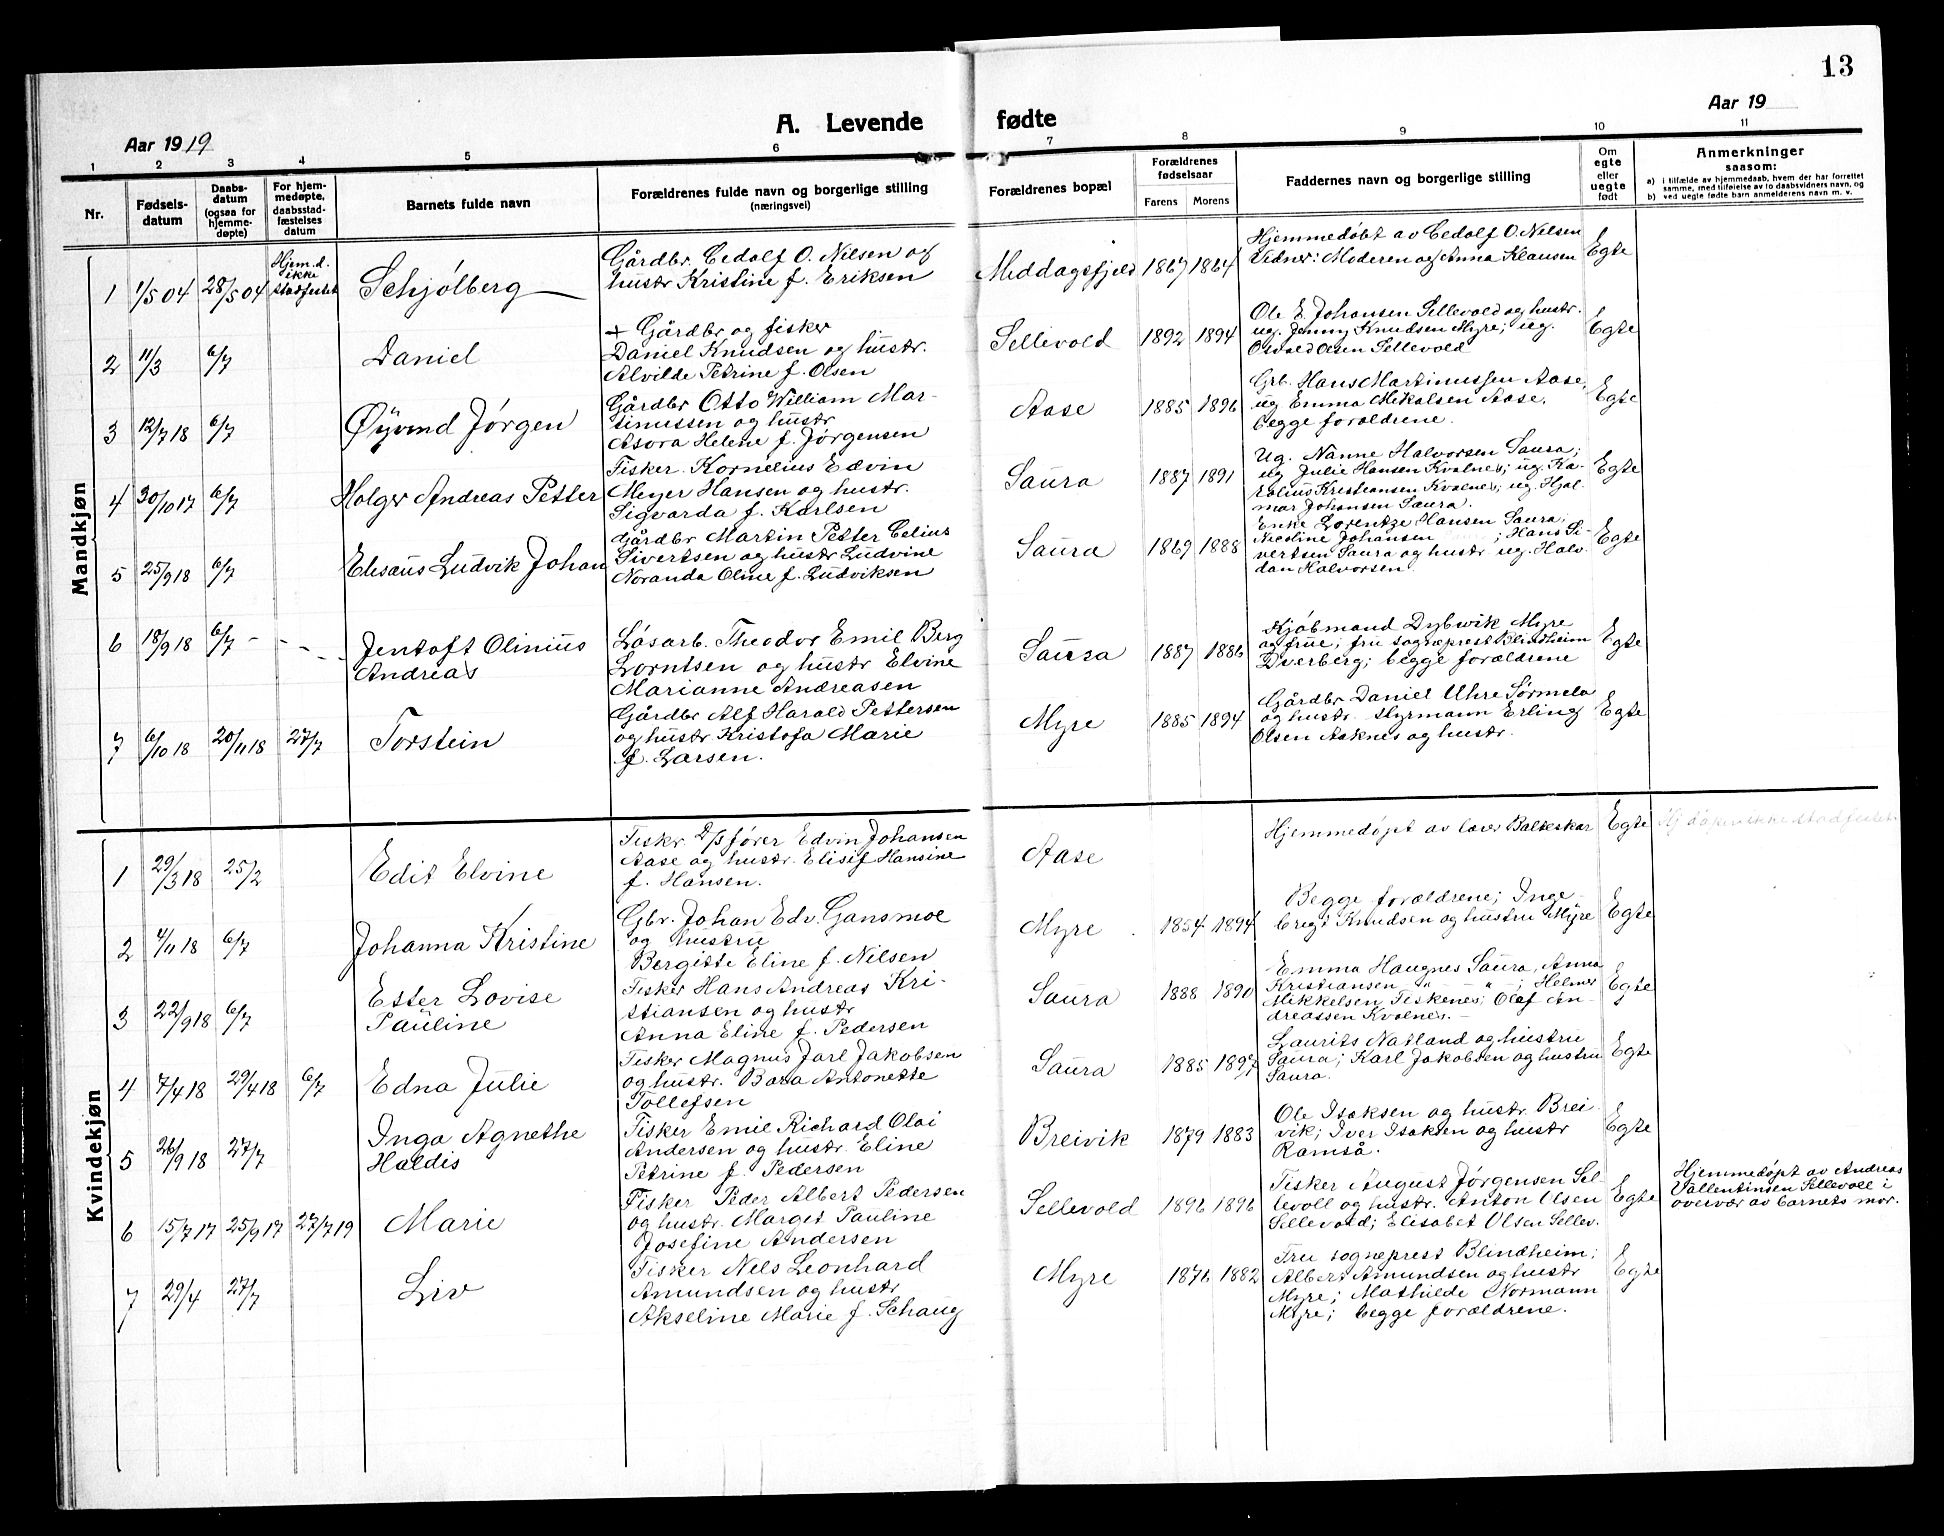 13
Aar 1919
A. Levende fødte
Aar 19
1 2 3 4 5 6 7 8 9 10 11
Nr.
Fødsels-
datum
Daabs-
datum
(ogsaa for
hjemme-
døpte)
For hjem-
medøpte,
daabsstad-
fæstelses
datum
Barnets fulde navn
Forældrenes fulde navn og borgerlige stilling
(næringsvei)
Forældrenes bopæl
Forældrenes
fødselsaar
Farens Morens
Faddernes navn og borgerlige stilling
Om
egte
eller
uegte
født
Anmerkninger
saasom:
a) i tilfælde av hjemmedaab, hvem der har forrettet
samme, med tilføielse av to daabsvidners navn, og
b) ved uegte fødte barn anmelderens navn m. v.
Mandkjøn
1 1/5 04 28/5 04
Hjem.d.
ikke
stadfestet
Schjølberg
Gårdbr. Cedolf O. Nilsen og
hustr Kristine f. Eriksen
Middagsfjeld 1867 1864
Hjemmedøbt av Cedolf O. Nilsen
Vidner: Moderen og Anna Klausen
Egte
2 11/3 6/7
Daniel
+ Gårdbr og fisker
Daniel Knudsen og hustr.
Alvilde Petrine f. Olsen
Sellevold 1892 1894
Ole E. Johansen Sellevold og hustr.
ug. Jenny Knudsen Myre; ug.
Osvald Olsen Sellevold
Egte
3 12/7 18 6/7
Øyvind Jørgen
Gårdbr Otto William Mar-
tinussen og hustr
Asora Helene f. Jørgensen
Aase 1885 1896
Grb. Hans Martinussen Aase,
ug Emma Mikalsen Aase,
begge forældrene.
Egte
4 30/10 17 6/7
Holger Andreas Petter
Fisker. Kornelius Edvin
Meyer Hansen og hustr.
Sigvarda f. Karlsen
Saura 1887 1891
Ug. Nanne Halvorsen Saura;
ug Julie Hansen Kvalnes; ug. Ka-
rolius Kristiansen Kvalnes; ug. Hjal-
mar Johansen Saura.
Egte
5 25/9 18 6/7
Elisæus Ludvik Johan
Gårdbr Martin Petter Celius
Sivertsen og hustr Ludvine
Noranda Oline f. Ludviksen
Saura 1869 1888
Enke Lorentze Hansen Saura,
Nicoline Johansen ; Hans Si-
vertsen Saura og hustr ug. Halv-
dan Halvorsen.
Egte
6 18/9 18 6/7 -
Jentoft Olinius
Andreas
Løsarb. Theodor Emil Berg
Lorntsen og hustr Elvine
Marianne Andreasen
Saura 1887 1886
Kjøbmand Dybwik Myre
og frue; fru sogneprest Blindheim
Dverberg; begge forældrene
Egte
7 6/10 18 20/11 18 27/7
Torstein
Gårdbr Alf Harald Pettersen
og hustr Kristofa Marie
f. Larsen.
Myre 1885 1894
Gårdbr Daniel Uhre Sørmela
og hustr. Styrmann Erling
Olsen Aaknes og hustr.
Egte
Kvindekjøn
1 29/3 18 25/2
Edit Elvine
Fiskr. D/s fører Edvin Johansen
Aase og hustr. Elisif Hansine
f. Hansen.
Aase
Hjemmedøpt av lærer Balteskar
Egte
Hj døpt ikke stadfestet
2 4/11 18 6/7
Johanna Kristine
Gbr. Johan Edv. Gansmoe
og hustru
Bergitte Eline f. Nilsen
Myre 1854 1894
Begge forældrene; Inge-
bregt Knudsen og hustru Myre
Egte
3 22/9 18 6/7
Ester Lovise
Pauline
Fisker Hans Andreas Kri-
stiansen og hustr
Anna Eline f. Pedersen
Saura 1888 1890
Emma Haugnes Saura, Anna
Kristiansen " - " -; Helmer
Mikkelsen Fiskenes; Olaf An-
dreassen Kvalnes. -
Egte
4 7/4 18 29/4 18 6/7
Edna Julie
Fisker Magnus Jarl Jakobsen
og hustr. Bara Antonette
Tollefsen
Saura 1885 1897
Laurits Natland og hustru
Saura; Karl Jakobsen og hustru
Saura.
Egte
5 26/9 18 27/7
Inga Agnethe
Haldis
Fisker Emil Richard Olai
Andersen og hustr. Eline
Petrine f. Pedersen
Breivik 1879 1883
Ole Isaksen og hustr. Brei-
vik; Iver Isaksen og hustr
Ramså.
Egte
6 15/7 17 25/9 17 27/7 19
Marie
Fisker Peder Albert Pedersen
og hustr. Marget Pauline
Josefine Andersen
Sellevold 1896 1896
Fisker August Jørgensen Sel-
levoll og hustr. Anton Olsen
Sellevold; Elisabet Olsen Sellev.
Egte
Hjemmedøpt av Andreas
Vallentinsen Sellevoll i
overvær av barnets mor.
7 29/4 27/7
Liv
Fisker Nels Leonhard
Amundsen og hustr
Akseline Marie f. Schaug
Myre 1876 1882
Fru sogneprest Blindheim;
Albert Amundsen og hustr
Myre; Mathilde Normann
Myre; begge forældrene.
Egte